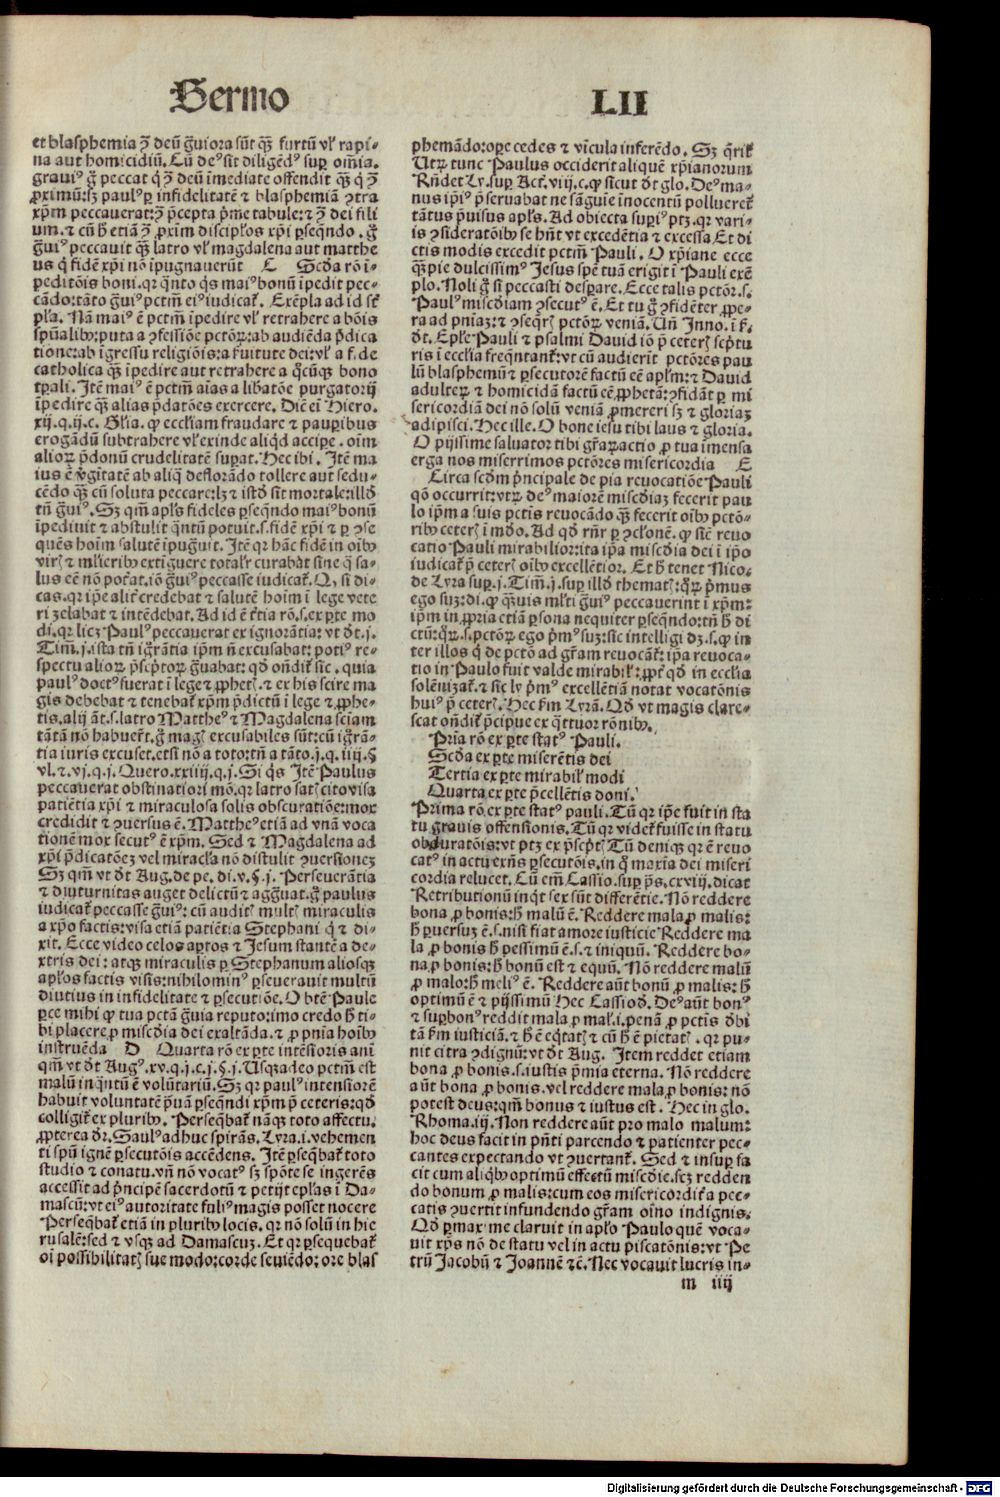 Sermo LII
et blasphemia ꝯ̄ deū g̃uiora sūt qꝫ̄ furtū vl̕ rapi⸗
na aut homicidiū. Cū deꝰ sit diligēdꝰ suꝑ om̄ia.
graviꝰ g̊ peccat q̇ ꝯ̄ deū īmediate offendit qꝫ̄ q̇ ꝯ̄
ꝓximū: sꝫ paulꝰ ꝑ infidelitatē ⁊ blasphemiā ꝯtra
xp̄m peccauerat: ꝯ̄ p̄cepta p̄me tabule: ⁊ ꝯ̄ dei fili
um. ⁊ cū h̄ etiā ꝯ̄ ꝓxim̄ discipl̕os xp̄i ꝑseqn̄do. g̊
g̃uiꝰ peccauit qꝫ̄ latro vl̕ magdalena aut matthe
us q̇ fidē xp̄i nō īpugnauerūt C Scd̄a rō ī⸗
peditōis boni. qr q̄nto q̇s maiꝰ bonū īpedit pec⸗
cādo: tāto g̃uiꝰ pctm̄ eiꝰ iudicat̕. Exēpla ad id sc̄t
pl̕a. Nā maiꝰ ē pctm̄ īpedire vl̕ retrahere a bōis
spūalibꝰ: puta a ꝯfessiōe pctōꝝ: ab audiēda p̄dica
tione: ab īgressu religiōis: a ſtuitute dei: vl̕ a f. de
catholica qꝫ̄ īpedire aut retrahere a q̇cūqꝫ bono
tꝑali. Itē maiꝰ ē pctm̄ aīas a lib̕atōe purgatorij
īpedire qꝫ̄ alias p̄datōes exercere. Dic̄ eī Hiero.
xij. q. ij. c. Gl̕ia. ꝙ eccl̕iam fraudare ⁊ pauꝑibus
erogādū subtrahere vl̕ exinde aliqd̕ accipe. oīm
alioꝝ p̄donū crudelitatē suꝑat. Hec ibi. Itē ma
ius ē v̕gītatē ab aliq̄ deflorādo tollere aut sedu⸗
cēdo qꝫ̄ cū soluta peccare: lꝫ ⁊ istd̕ sit mortale: illd̕
tn̄ g̃uiꝰ. Sꝫ qm̄ apl̕s fideles ꝑseqn̄do maiꝰ bonū
īpediuit ⁊ abstulit qn̄tū potuit. s. fidē xp̄i ⁊ ꝑ ꝯse
quēs hoīm salutē īpug̃uit. Itē qr hāc fidē in oībꝰ
viris ⁊ ml̕ieribꝰ extīguere totalr̄ curabāt sine q̄ sa⸗
lus eē nō pot̄at. iō g̃uiꝰ peccasse iudicat̕. Q, si di⸗
cas. qr ip̄e alit̕ credebat ⁊ salutē hoīm ī lege vete
ri zelabat ⁊ intēdebat. Ad id ē t̄tia rō. s. ex ꝑte mo
di. qr licꝫ Paulꝰ peccauerat ex ignorātia: vt dt̄. j.
Tim̄. j. ista tn̄ ig̃rātia ip̄m n̄ excusabat: potiꝰ re⸗
spectu alioꝝ p̄sc̄ptoꝝ g̃uabat: qd̕ on̄dit̕ sic. quia
paulꝰ doctꝰ fuerat ī lege ⁊ ꝓphetꝭ. ⁊ ex his scire ma
gis debebat ⁊ tenebat̕ xp̄m p̄dictū ī lege ⁊ ꝓphe⸗
tis. alij āt. s. latro Mattheꝰ ⁊ Magdalena sciam
tātā nō habuer̄t. g̊ magꝭ excusabiles sūt: cū ig̃rā⸗
tia iuris excuset. etsi nō a toto: tn̄ a tāto. j. q. iiij. §
vl. ⁊. vj. q. j. Quero. xxiiij. q. j. Si q̇s Itē Paulus
peccauerat obstinatiori mō. qr latro satꝭ cito visa
patiētia xp̄i ⁊ miraculosa solis obscuratiōe: mox
credidit ⁊ ꝯuersus ē. Mattheꝰ etiā ad vnā voca
tionē mox secutꝰ ē xp̄m. Sed ⁊ Magdalena ad
xp̄i p̄dicatōeꝫ vel miracl̕a nō distulit ꝯuersioneꝫ
Sꝫ qm̄ vt dt̄ Aug. de pe. di. v. §. j. Perseuerātia
⁊ diuturnitas auget delictū ⁊ agg̃uat. g̊ paulus
iudicat̕ peccasse g̃uiꝰ: cū auditꝭ multꝭ miraculis
a xp̄o factis: visa etiā patiētia Stephani q̇ ⁊ di⸗
xit. Ecce video celos aꝑtos ⁊ Jesum stantē a de⸗
xtris dei: atqꝫ miraculis ꝑ Stephanum aliosqꝫ
apl̕os factis visis: nihilominꝰ ꝑseuerauit multū
diutius in infidelitate ⁊ ꝑsecutiōe. O btē Paule
ꝑce mihi ꝙ tua pctā g̃uia reputo: imo credo h̄ ti⸗
bi placere ꝓ miscd̄ia dei exaltāda. ⁊ ꝓ pn̄ia hoībꝰ
instruēda D Quarta rō ex ꝑte intēsioris anī
qm̄ vt dt̄ Augꝰ. xv. q. j. c. j. §. j. Usqꝫadeo pctm̄ est
malū inqn̄tū ē volūtariū. Sꝫ qr paulꝰ intensiorē
habuit voluntatē p̄uā ꝑseqn̄di xp̄m p̄ ceteris: qd̕
colligit̕ ex pluribꝰ. Perseqb̄at̕ nāqꝫ toto affectu.
ꝓpterea dr̄. Saulꝰ adhuc spirās. Lyra. i. vehemen
ti spū ignē ꝑsecutōis accēdens. Itē ꝑseqb̄at̕ toto
studio ⁊ conatu. vn̄ nō vocatꝰ sꝫ spōte se ingerēs
accessit ad p̄ncipē sacerdotū ⁊ petijt ep̄l̕as ī Da⸗
mascū: vt eiꝰ autoritate fulꝰ magis posset nocere
Perseqb̄at̕ etiā in pluribꝰ locis. qr nō solū in hie
rusalē: sed ⁊ vsqꝫ ad Damascuꝫ. Et qr ꝑsequebat̕
oī possibilitatꝭ sue modo: corde seuiēdo: ore blas
phemādo: oꝑe cedes ⁊ vīcula inferēdo. Sꝫ q̄rit̕
Utꝝ tunc Paulus occiderit aliquē xp̄ianorum
Rn̄det Ly. suꝑ Act̄. viij. c. ꝙ sicut dt̄ glo. Deꝰ ma⸗
nus ip̄iꝰ p̄seruabat ne sāguīe inocentū pollueret̕
tātus p̄uisus apl̕s. Ad obiecta suꝑiꝰ ptꝫ. qr vari⸗
is ꝯsideratōibꝰ se hn̄t vt excedētia ⁊ excessa Et di
ctis modis excedit pctm̄ Pauli. O xp̄iane ecce
qꝫ̄ pie dulcissimꝰ Jesus spē tuā erigit ī Pauli exē
plo. Noli g̊ si peccasti desꝑare. Ecce talis pctōr. s.
Paulꝰ miscd̄iam ꝯsecutꝰ ē. Et tu g̊ ꝯfidēter ꝓpe⸗
ra ad pn̄iaꝫ: ⁊ ꝯseqr̄ꝭ pctōꝝ veniā. Un̄ Inno. ī f̄.
dt̄. Epl̕e Pauli ⁊ psalmi Dauid iō p̄ ceterꝭ sc̄ptu
ris ī eccl̕ia freqn̄tant̕: vt cū audierit pctōres pau
lū blasphemū ⁊ ꝑsecutorē factū eē apl̕m: ⁊ Dauid
adulteꝝ ⁊ homicidā factū eē ꝓphetā: ꝯfidāt ꝑ mi
sericordiā dei nō solū veniā ꝓmereri sꝫ ⁊ gloriaꝫ
adipisci. Hec ille. O bone iesu tibi laus ⁊ gloria.
O pijssime saluator tibi gr̄aꝝ actio ꝓ tua imensa
erga nos miserrimos pctōres misericordia E
Circa scd̄m p̄ncipale de pia reuocatiōe Pauli
qō occurrit: vtꝝ deꝰ maiorē miscd̄iaꝫ fecerit pau
lo ip̄m a suis pctis reuocādo qꝫ̄ fecerit oībꝰ pctō⸗
ribꝰ ceterꝭ ī mōdo. Ad qd̕ rn̄r ꝑ ꝯcl̕onē. ꝙ sic̄ reuo
catio Pauli mirabilior: ita ip̄a miscd̄ia dei ī ip̄o
iudicat̕ p̄ ceterꝭ oībꝰ excellētior. Et h̄ tenet Nico⸗
de Lyra suꝑ. j. Tim̄. j. suꝑ illd̕ themathꝭ: q̄ꝝ p̄mus
ego suꝫ: di. ꝙ qꝫ̄uis ml̕ti g̃uiꝰ peccauerint ī xp̄m:
ip̄m in ꝓpria etiā ꝑsona nequiter ꝑseqn̄do: tn̄ h̄ di
ctū: q̄ꝝ. s. pctōꝝ ego p̄mꝰ suꝫ: sic intelligi dꝫ. s. ꝙ in
ter illos q̇ de pctō ad gr̄am reuocant̕: ip̄a reuoca⸗
tio in Paulo fuit valde mirabil̕: ꝓpt̕ qd̕ in eccl̕ia
solēnizat̕. ⁊ sic ly p̄mꝰ excellētiā notat vocatōnis
huiꝰ p̄ ceterꝭ. Hec ẜm Lyrā. Qd̕ vt magis clare⸗
scat on̄dit̕ p̄cipue ex q̇ttuor rōnibꝰ.
Pria rō ex ꝑte statꝰ Pauli.
Scd̄a ex ꝑte miserētis dei
Tertia ex ꝑte mirabil̕ modi
Quarta ex ꝑte p̄cellētis doni.
Prima rō ex ꝑte statꝰ pauli. Tū qr ip̄e fuit in sta
tu grauis offensionis. Tū qr videt̕ fuisse in statu
obduratōis: vt ptꝫ ex p̄scp̄tꝭ Tū deniqꝫ qr ē reuo
catꝰ in actu exn̄s ꝑsecutōis. in q̄ maxīa dei miseri
cordia relucet. Cū em̄ Cassio. suꝑ ps̄. cxviij. dicat
Retributionū inqt̕ sex sūt differētie. Nō reddere
bona ꝓ bonis: h̄ malū ē. Reddere mala ꝓ malis:
h̄ ꝑuersuꝫ ē. s. nisi fiat amore iusticie Reddere ma
la ꝓ bonis h̄ pessimū ē. s. ⁊ iniquū. Reddere bo⸗
na ꝓ bonis: h̄ bonū est ⁊ equū. Nō reddere malū
ꝓ malo: h̄ meliꝰ ē. Reddere aūt bonū ꝓ malis: h̄
optimū ē ⁊ pijssimū Hec Cassiod̕. Deꝰ aūt bonꝰ
⁊ suꝑbonꝰ reddit mala ꝓ mal̕. i. penā ꝓ pctis dbi
tā ẜm iusticiā. ⁊ h̄ ē eq̇tatꝭ ⁊ cū h̄ ē pietatꝭ. qr pu⸗
nit citra ꝯdignū: vt dt̄ Aug. Item reddet etiam
bona ꝓ bonis. s. iustis p̄mia eterna. Nō reddere
aūt bona ꝓ bonis. vel reddere mala ꝓ bonis: nō
potest deus: qm̄ bonus ⁊ iustus est. Hec in glo.
Rhoma. iij. Non reddere aūt pro malo malum:
hoc deus facit in pn̄ti parcendo ⁊ patienter pec⸗
cantes expectando vt ꝯuertant̕. Sed ⁊ insuꝑ fa
cit cum aliq̇bꝰ optimū effectū miscd̄ie. scꝫ redden
do bonum ꝓ malis: cum eos misericordit̕ a pec⸗
catis ꝯuertit infundendo gr̄am oīno indignis.
Qd̕ ꝑmaxime claruit in apl̕o Paulo quē voca⸗
uit xp̄s nō de statu vel in actu piscatōnis: vt Pe
trū Jacobū ⁊ Joannē ⁊c̄. Nec vocauit lucris in⸗
m iiij
Digitalisierung gefördert durch die Deutsche Forschungsgemeinschaft - DFG